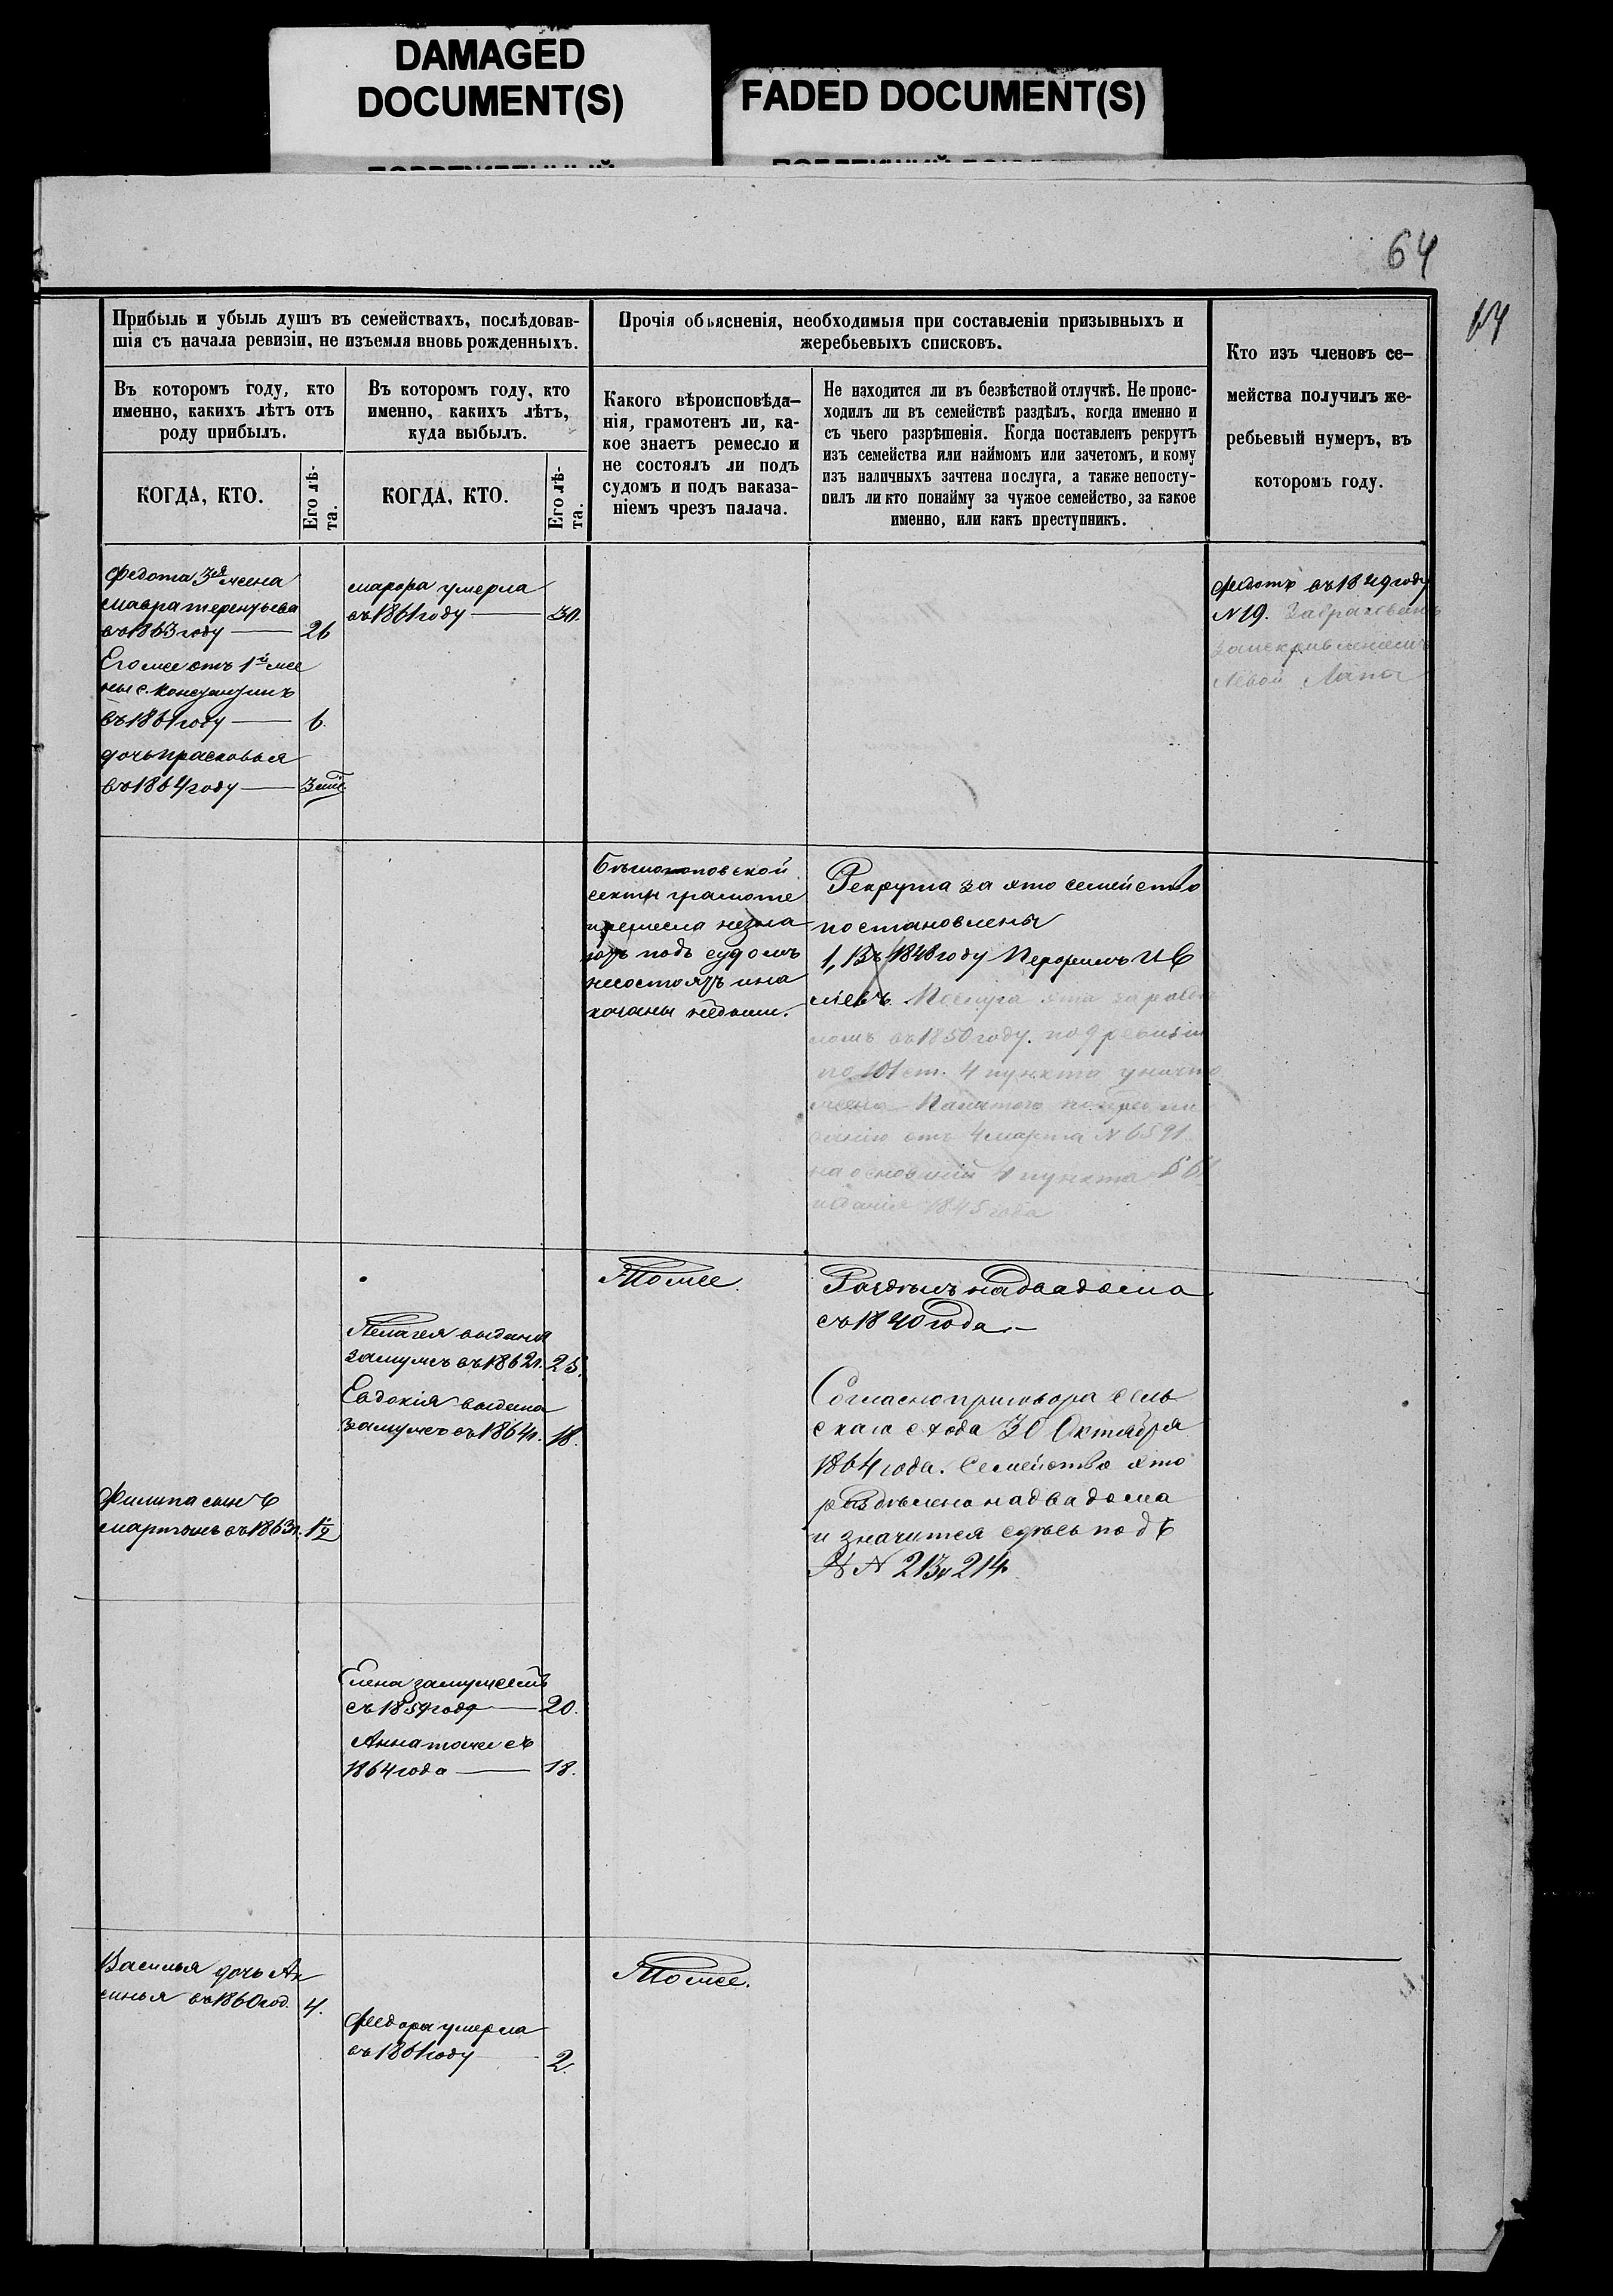 DAMAGED
DOCUMENT(S)
FADED DOCUMENT(S)
64
64
Прибыль и убыль душъ въ семействахъ, послѣдовав-
шія съ начала ревизіи, не изъемля вновь рожденныхъ.
Въ которомъ году, кто
именно, какихъ лѣтъ отъ
роду прибылъ.
КОГДА, КТО.
Его лѣ-
та.
Въ которомъ году, кто
именно, какихъ лѣтъ,
куда выбылъ.
КОГДА, КТО.
Его лѣ-
та.
Прочія объясненія, необходимыя при составленіи призывныхъ и
жеребьевыхъ списковъ.
Какого вѣроисповѣда-
нія, грамотенъ ли, ка-
кое знаетъ ремесло и
не состоялъ ли подъ
судомъ и подъ наказа-
ніемъ чрезъ палача.
Не находится ли въ безвѣстной отлучкѣ. Не проис-
ходилъ ли въ семействѣ раздѣлъ, когда именно и
съ чьего разрѣшенія. Когда поставленъ рекрутъ
изъ семейства или наймомъ или зачетомъ, и кому
изъ наличныхъ зачтена послуга, а также непосту-
пилъ ли кто понайму за чужое семейство, за какое
именно, или какъ преступникъ.
Кто изъ членовъ се-
мейства получилъ же-
ребьевый нумеръ, въ
которомъ году.
Федота 3я жена
мавра терентьева
въ 1863 году — 26
Его же отъ 1й же
ны с. Константинъ
въ 1861 году — 6.
дочь прасковья
въ 1864 году — 3 мѣс
марфа умерла
въ 1861 году — 30.
Федотъ въ 1849 году
N 19. Забракованъ
заискривленіемъ
лѣвой
секты грамоте
иремесла незна
ютъ подъ судомъ
несостоятъ ина
казаны небыли.
Рекрута за это семейство
постановлены
1, Въ 1848 году
Послуга эта
въ 1850 году. по 9 ревизіи
по 101 ст. 4 пункта уничто
жена Палатою
отъ 4 марта N 6591
на основаніи 4 пункта
изданія 1845 года
Тоже.
Раздѣлъ на два дома
съ 1840 года. —
Согласно приговора сель
скаго схода 30 Октября
1864 года. Семейство это
раздѣлено на два дома
и значится здѣсь подъ
N N 213 и 214.
Пелагея выдана
замужъ въ 1862 г. 25.
Евдокія выдана
замужъ въ 1864 г. 18.
Филипа сынъ
мартынъ въ 1863 г. 1½
Елена замужемъ
съ 1859 года — 20.
Анна тоже съ
1864 года — 18.
Василья дочь Ак
синья въ 1860 год. 4.
Федора умерла
въ 1861 году 2.
Тоже.